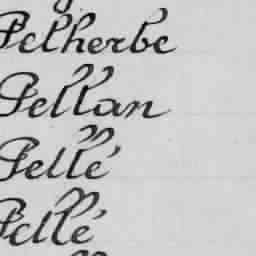 Pelherbe
Pellan
Pellé
Pellé